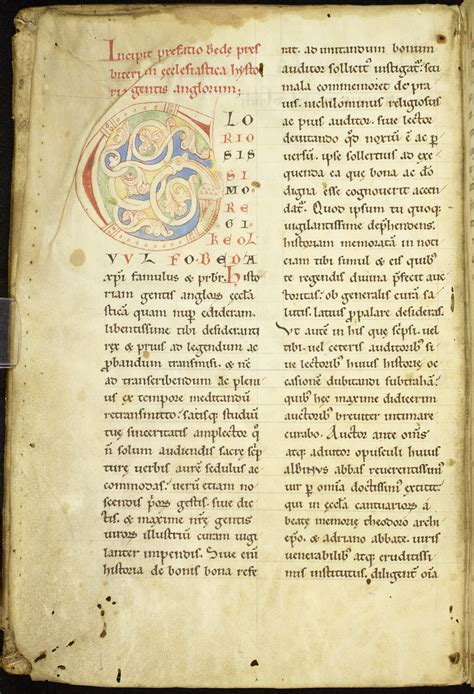 Incipit prefatio Bede pres
biteri in ęcclesiastica hysto
riā gentis anglorum;
GLO
RIO
SIS
SI
MO
RE
GI
CEOL
VVLFO. BEDA
xp̄i famulus & pr̄br. Histo
riam gentis anglorū ęcclā
sticā quam nup edideram.
libentissime tibi desideranti
rex & prius ad legendum ac
probandum transmisi. & nc̄
ad transcribendum ac pleni
us ex tempore meditandū
retransmitto; satisq; studiū
tuę sinceritatis amplector. q̄
n̄ solum audiendis sacrę scp̄
turę verbis aurem sedulus ac
commodas. verū etiam no
scendis prōrs gestis. siue dic
tis. & maxime nr̄ę gentis
virorū illustriū curam vigi
lanter impendis. Siue eni
historia de bonis bona refe
rat. ad imitandum bonum
auditor sollicitus instigat; seu
mala commemoret de pra
uis. nichilominus religiosus
ac pius auditor. siue lector
deuitando quod noxiū ē ac p
uersū. ips sollertius ad exe
quenda ea quę bona ac dō
digna esse cognouerit accen
dat. Quod ipsum tu quoq;
vigilantissime deprehendens.
historiam memoratā in noti
ciam tibi simul & eis quib;
te regendis diuina pfecit auc
toritas. ob generalis curā sa
lutis. latius ppalare desideras.
Ut autē in his quę scripsi. vel
tibi. vel ceteris auditorib; si
ue lectorib; huius historię oc
casionē dubitandi subtrahā.
quib; hęc maxime didicerim
auctorib; breuiter intimare
curabo. Auctor ante om̄s
atq; adiutor opusculi huius
albinus abbas reuerentissim;
vir p omia doctissim; extitit.
qui in ęcclā cantuariorū a
beatę memorię theodoro archi
epō. & adriano abbate. viris
venerabilib; atq; eruditissi
mis institutus. diligent oīa